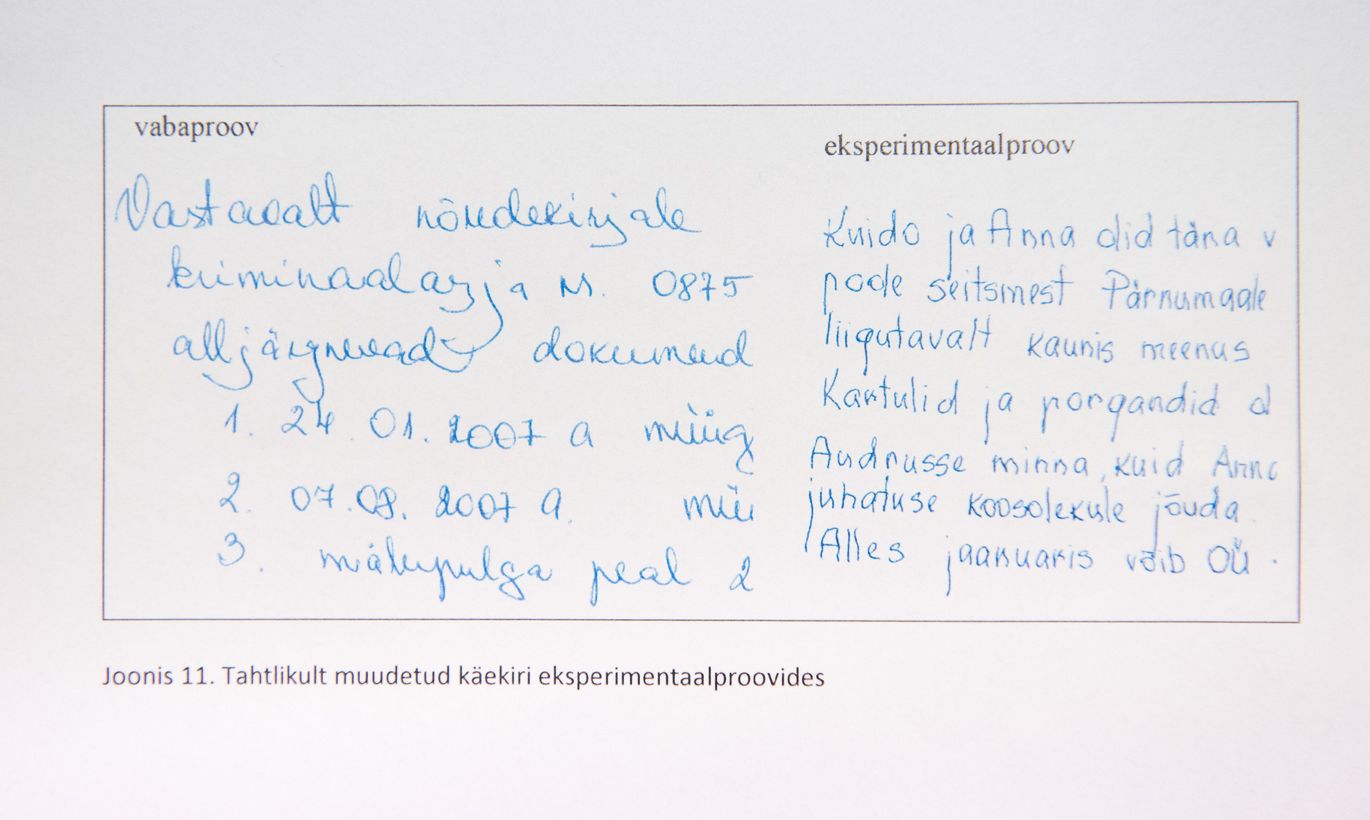 vabaproov
Vastavalt nõudekirjale
kriminaalasja nr. 0875
alljärgnevad dokumend
1. 24. 01. 2007 a müüg
2. 07.08. 2007 a. müü
3. mälupulga peal 2
eksperimentaalproov
Kuido ja Anna olid täna v
poole seitsmest Pärnumaale
liigutavalt kaunis meenus
Kartulid ja porgandid o
Audrusse minna, kuid Anna
juhatuse koosolekule jõuda
Alles jaanuaris võib OÜ
Joonis 11. Tahtlikult muudetud käekiri eksperimentaalproovides